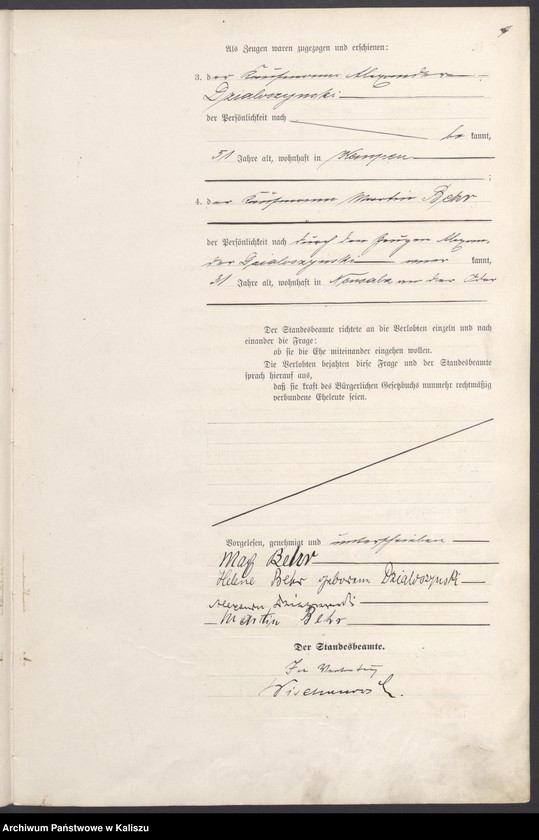 Als Zeugen waren zugezogen und erschienen:
3. der Kaufmann Alexander
Dzialoszynski
der Persönlichkeit nach
be kannt,
51 Jahre alt, wohnhaft in Kempen
;
4. der Kaufmann Martin Behr
der Persönlichkeit nach durch den Zeugen Alexan-
der Dzialoszynski aner kannt,
31 Jahre alt, wohnhaft in Neusalz an der Oder
Der Standesbeamte richtete an die Verlobten einzeln und nach
einander die Frage:
ob sie die Ehe miteinander eingehen wollen.
Die Verlobten bejahten diese Frage und der Standesbeamte
sprach hierauf aus,
daß sie kraft des Bürgerlichen Gesetzbuchs nunmehr rechtmäßig
verbundene Eheleute seien.
Vorgelesen, genehmigt und unterschrieben
Max Behr
Helene Behr geborene Dzialoszynski
Alexander Dzialoszynski
Martin Behr
Der Standesbeamte.
In Vertretung
Archiwum Państwowe w Kaliszu